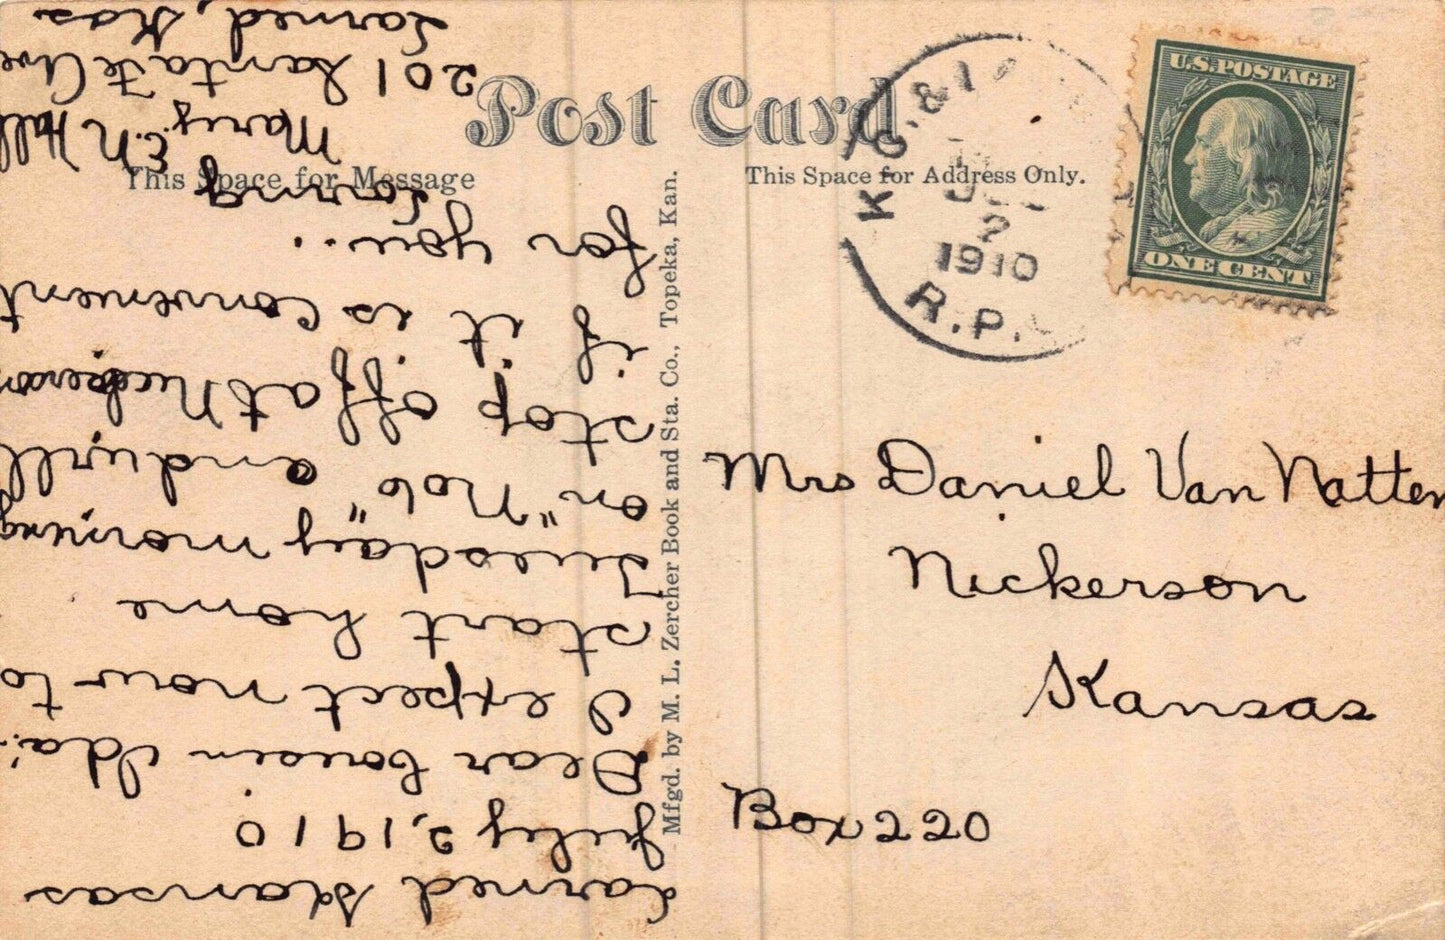 Post Card
This Space for Message
This Space for Address Only.
U.S. POSTAGE
ONE CENT
K.C. &
2
1910
R.P.
Mfgd. by M. L. Zercher Book and Sta. Co., Topeka, Kan.
Larned Kansas
July 2, 1910
Dear Cousin Ida:
I expect now to
start home
Tuesday morning
on "No 6" and will
stop off at Nickerson
if it is convenient
for you..
Loving
Mary E. N. Hall
201 Santa Fe Ave
Larned, Kas
Mrs Daniel Van Natten
Nickerson
Kansas
Box 220